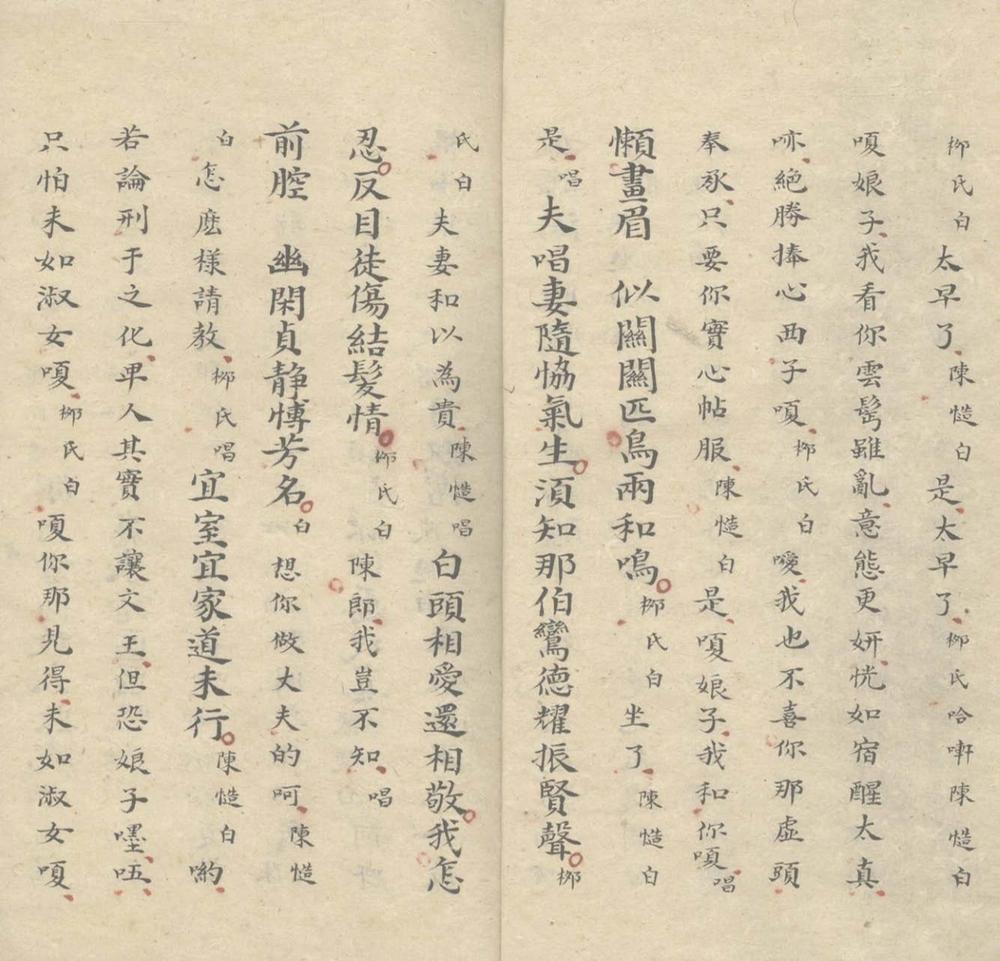 柳氏白太早了陳慥白是太早了柳氏哈啈陳慥白
嗄娘子我看你雲髩雖亂意態更妍恍如宿醒太真
亦絕勝捧心西子嗄柳氏白噯我也不喜你那虛頭
奉承只要你實心帖服陳慥白是嗄娘子我和你嗄唱
懶畫眉 似關關匹鳥兩和鳴柳氏白坐了陳慥白
是唱夫唱妻隨恊氣生須知那伯鸞德耀振賢聲柳
氏白夫妻和以為貴陳慥唱白頭相愛還相敬我怎
忍反目徒傷結髮情柳氏白陳郎我豈不知唱
前腔 幽閑貞静愽芳名白想你做大夫的呵陳慥
白怎麽樣請教柳氏唱宜室宜家道未行陳慥白喲
若論刑于之化卑人其實不讓文王但恐娘子嚜㕶
只怕未如淑女嗄柳氏白嗄你那見得未如淑女嗄